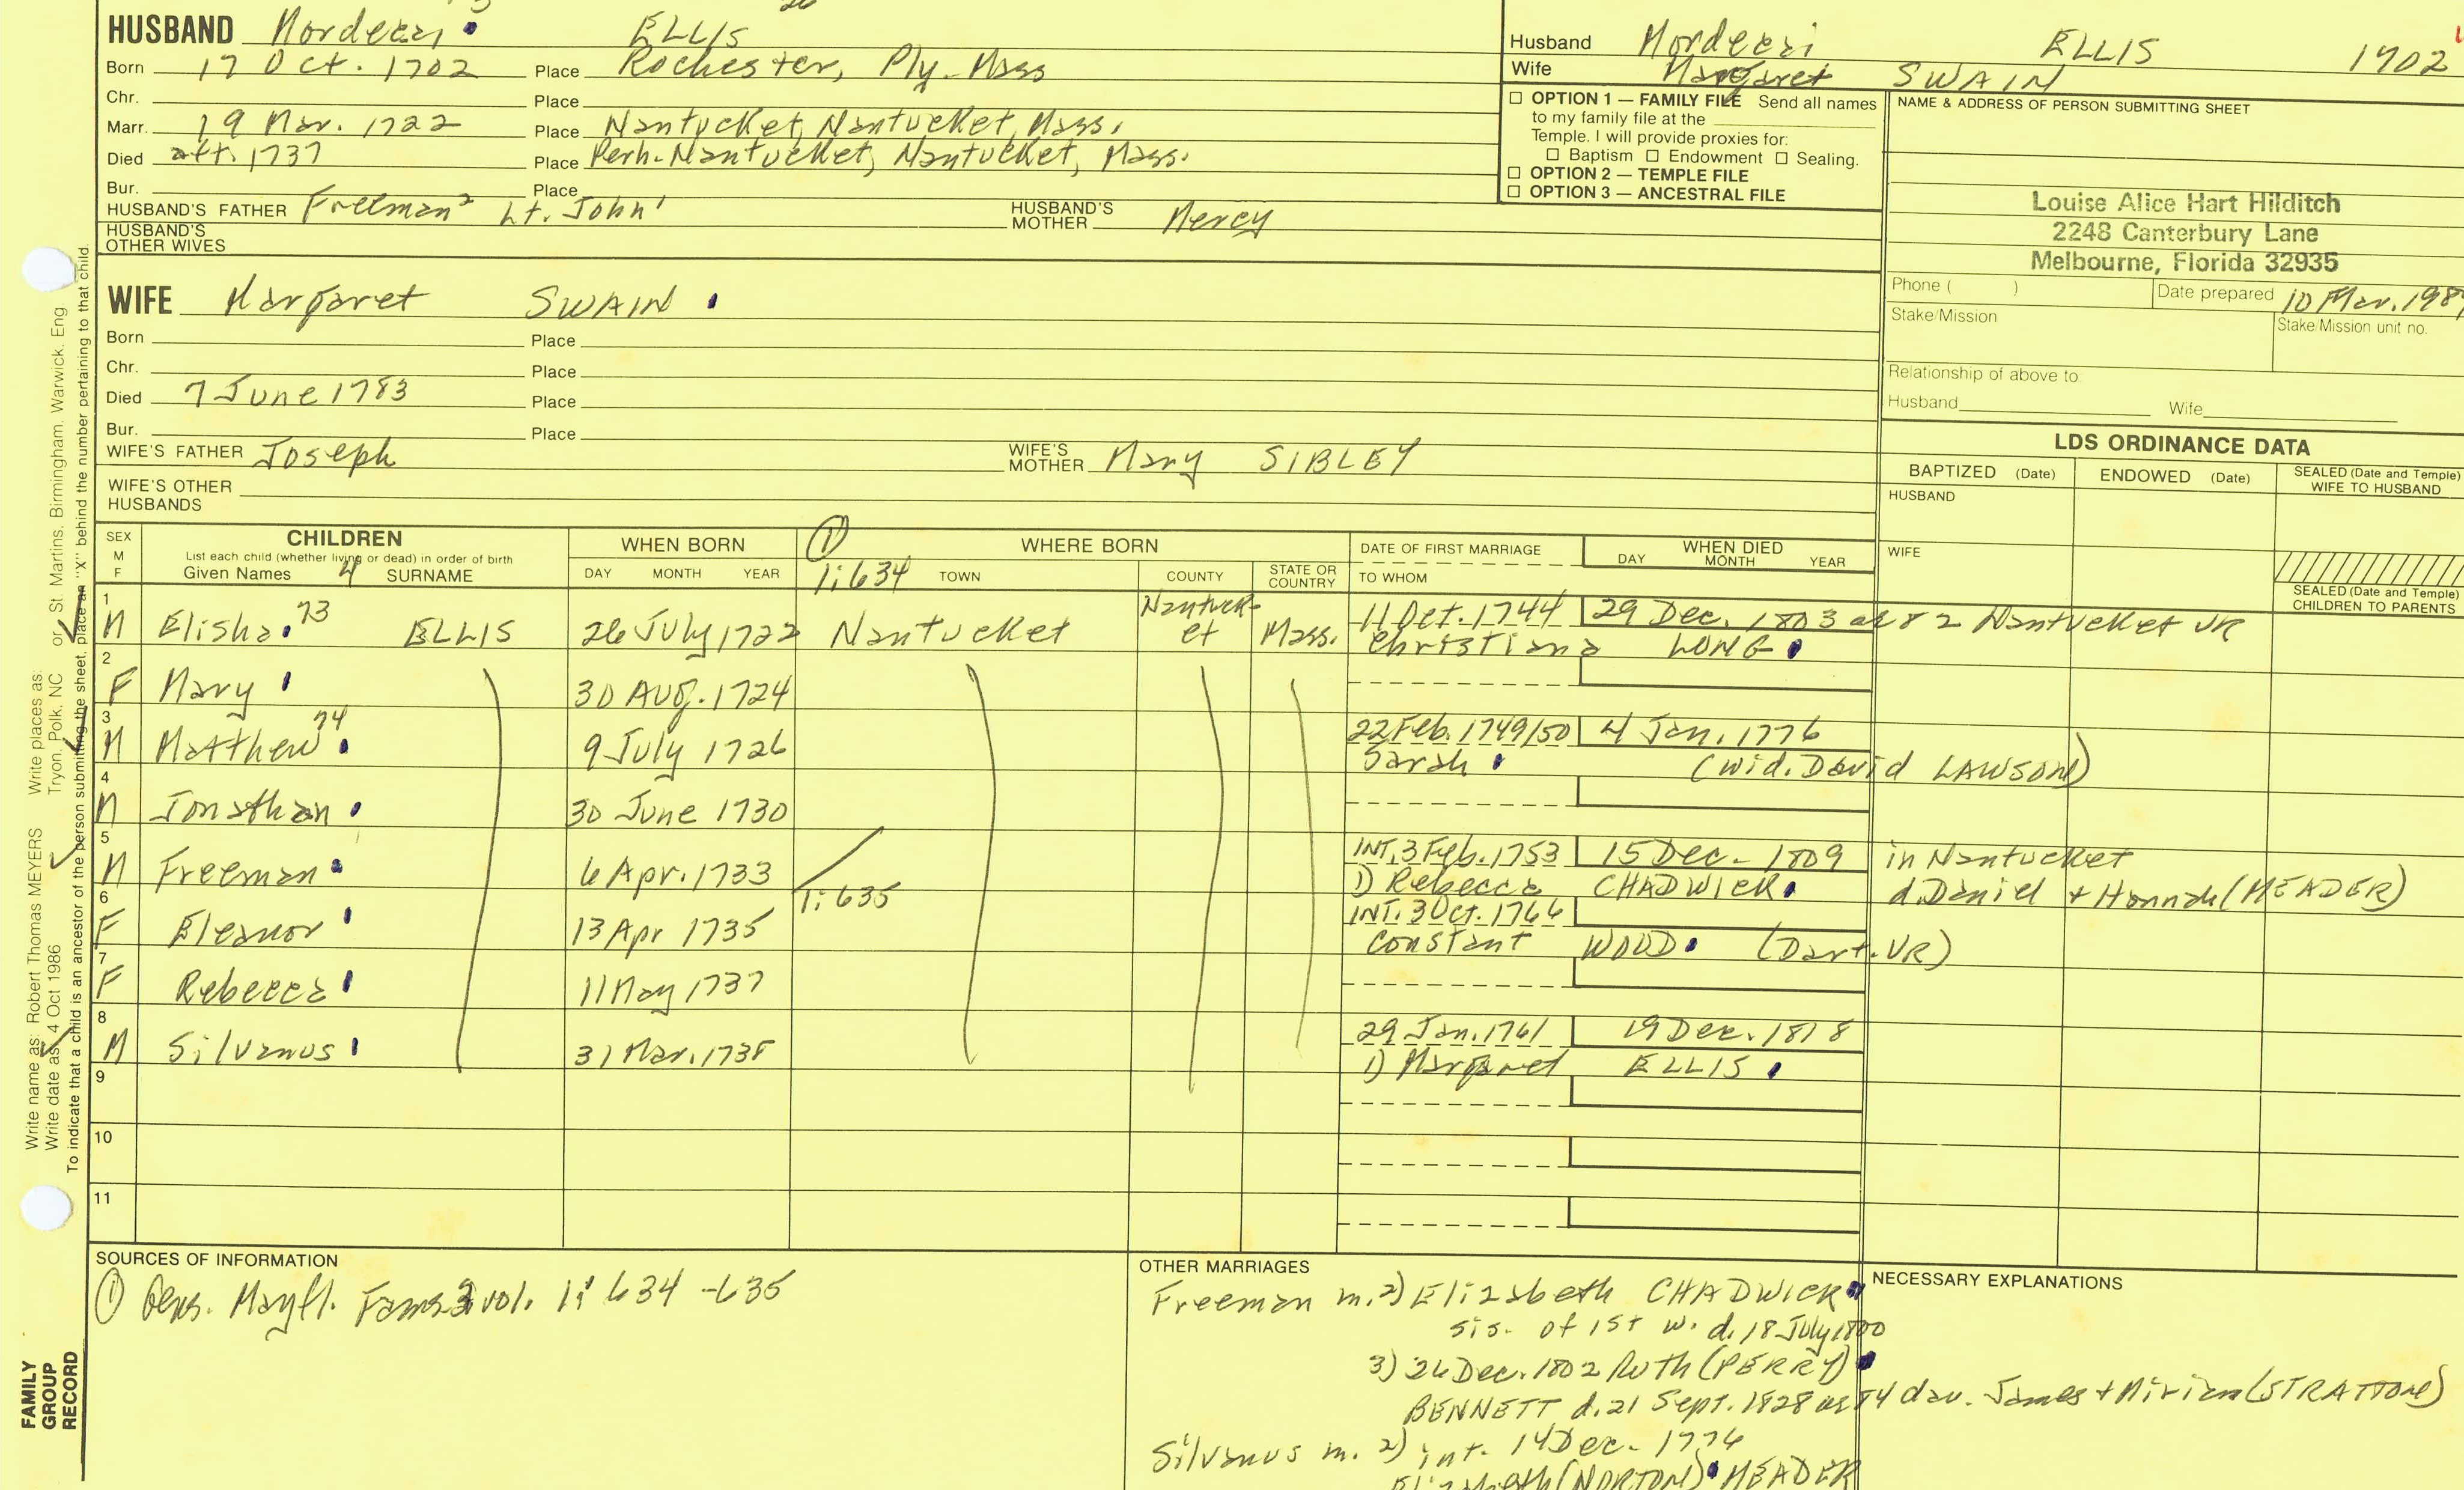 HUSBAND Mordecai ELLIS
Born 17 Oct. 1702 Place Rochester, Ply. Mass
Chr. Place
Marr. 19 Mar. 1722 Place Nantucket, Nantucket, Mass.
Died aft. 1737 Place Perh. Nantucket, Nantucket, Mass.
Bur. Place
HUSBAND'S FATHER Freeman² Lt. John¹ HUSBAND'S MOTHER Mercy
HUSBAND'S OTHER WIVES
WIFE Margaret SWAIN
Born Place
Chr. Place
Died 7 June 1783 Place
Bur. Place
WIFE'S FATHER Joseph WIFE'S MOTHER Mary SIBLEY
WIFE'S OTHER HUSBANDS
Husband Mordecai ELLIS 1702
Wife Margaret SWAIN
OPTION 1 — FAMILY FILE Send all names
to my family file at the
Temple. I will provide proxies for:
Baptism Endowment Sealing.
OPTION 2 — TEMPLE FILE
OPTION 3 — ANCESTRAL FILE
NAME & ADDRESS OF PERSON SUBMITTING SHEET
Louise Alice Hart Hilditch
2248 Canterbury Lane
Melbourne, Florida 32935
Phone ( ) Date prepared 10 Mar. 198
Stake/Mission Stake/Mission unit no.
Relationship of above to
Husband Wife
LDS ORDINANCE DATA
BAPTIZED (Date) ENDOWED (Date) SEALED (Date and Temple) WIFE TO HUSBAND
HUSBAND
WIFE
SEALED (Date and Temple) CHILDREN TO PARENTS
SEX M F CHILDREN
List each child (whether living or dead) in order of birth
Given Names 4 SURNAME
WHEN BORN
DAY MONTH YEAR
① WHERE BORN
1:634 TOWN COUNTY STATE OR COUNTRY
DATE OF FIRST MARRIAGE
TO WHOM
WHEN DIED
DAY MONTH YEAR
1 M Elisha 73 ELLIS 26 July 1722 Nantucket Nantuck-et Mass. 11 Oct. 1744 29 Dec. 1803 ae 82 Nantucket VR
Christiana LONG
2 F Mary 30 Aug. 1724
3 M Matthew 74 9 July 1726 22 Feb. 1749/50 4 Jan. 1776
Sarah (wid. David LAWSON)
4 M Jonathan 30 June 1730
5 M Freeman 6 Apr. 1733 INT. 3 Feb. 1753 15 Dec. 1809 in Nantucket
1) Rebecca CHADWICK d. Daniel + Hannah (MEADER)
1:635
6 F Eleanor 13 Apr 1735 INT. 3 Oct. 1766
Constant WOOD (Dart. VR)
7 F Rebecca 11 May 1737
8 M Silvanus 31 Mar. 1738 29 Jan. 1761 19 Dec. 1818
1) Margaret ELLIS
9
10
11
SOURCES OF INFORMATION
① Gens. Mayfl. Fams. 3 vol. 1: 634-635
OTHER MARRIAGES
Freeman m. 2) Elizabeth CHADWICK
sis. of 1st w. d. 18 July 1800
3) 26 Dec. 1802 Ruth (PERRY)
BENNETT d. 21 Sept. 1828 ae 84 dau. James + Miriam (STRATTON)
Silvanus m. 2) int. 14 Dec. 1776
Elizabeth (NORTON) MEADER
NECESSARY EXPLANATIONS
Write name as: Robert Thomas MEYERS Write places as:
Write date as: 4 Oct 1986 Tryon, Polk, NC or St. Martins, Birmingham, Warwick, Eng
To indicate that a child is an ancestor of the person submitting the sheet, place an "X" behind the number pertaining to that child.
FAMILY
GROUP
RECORD